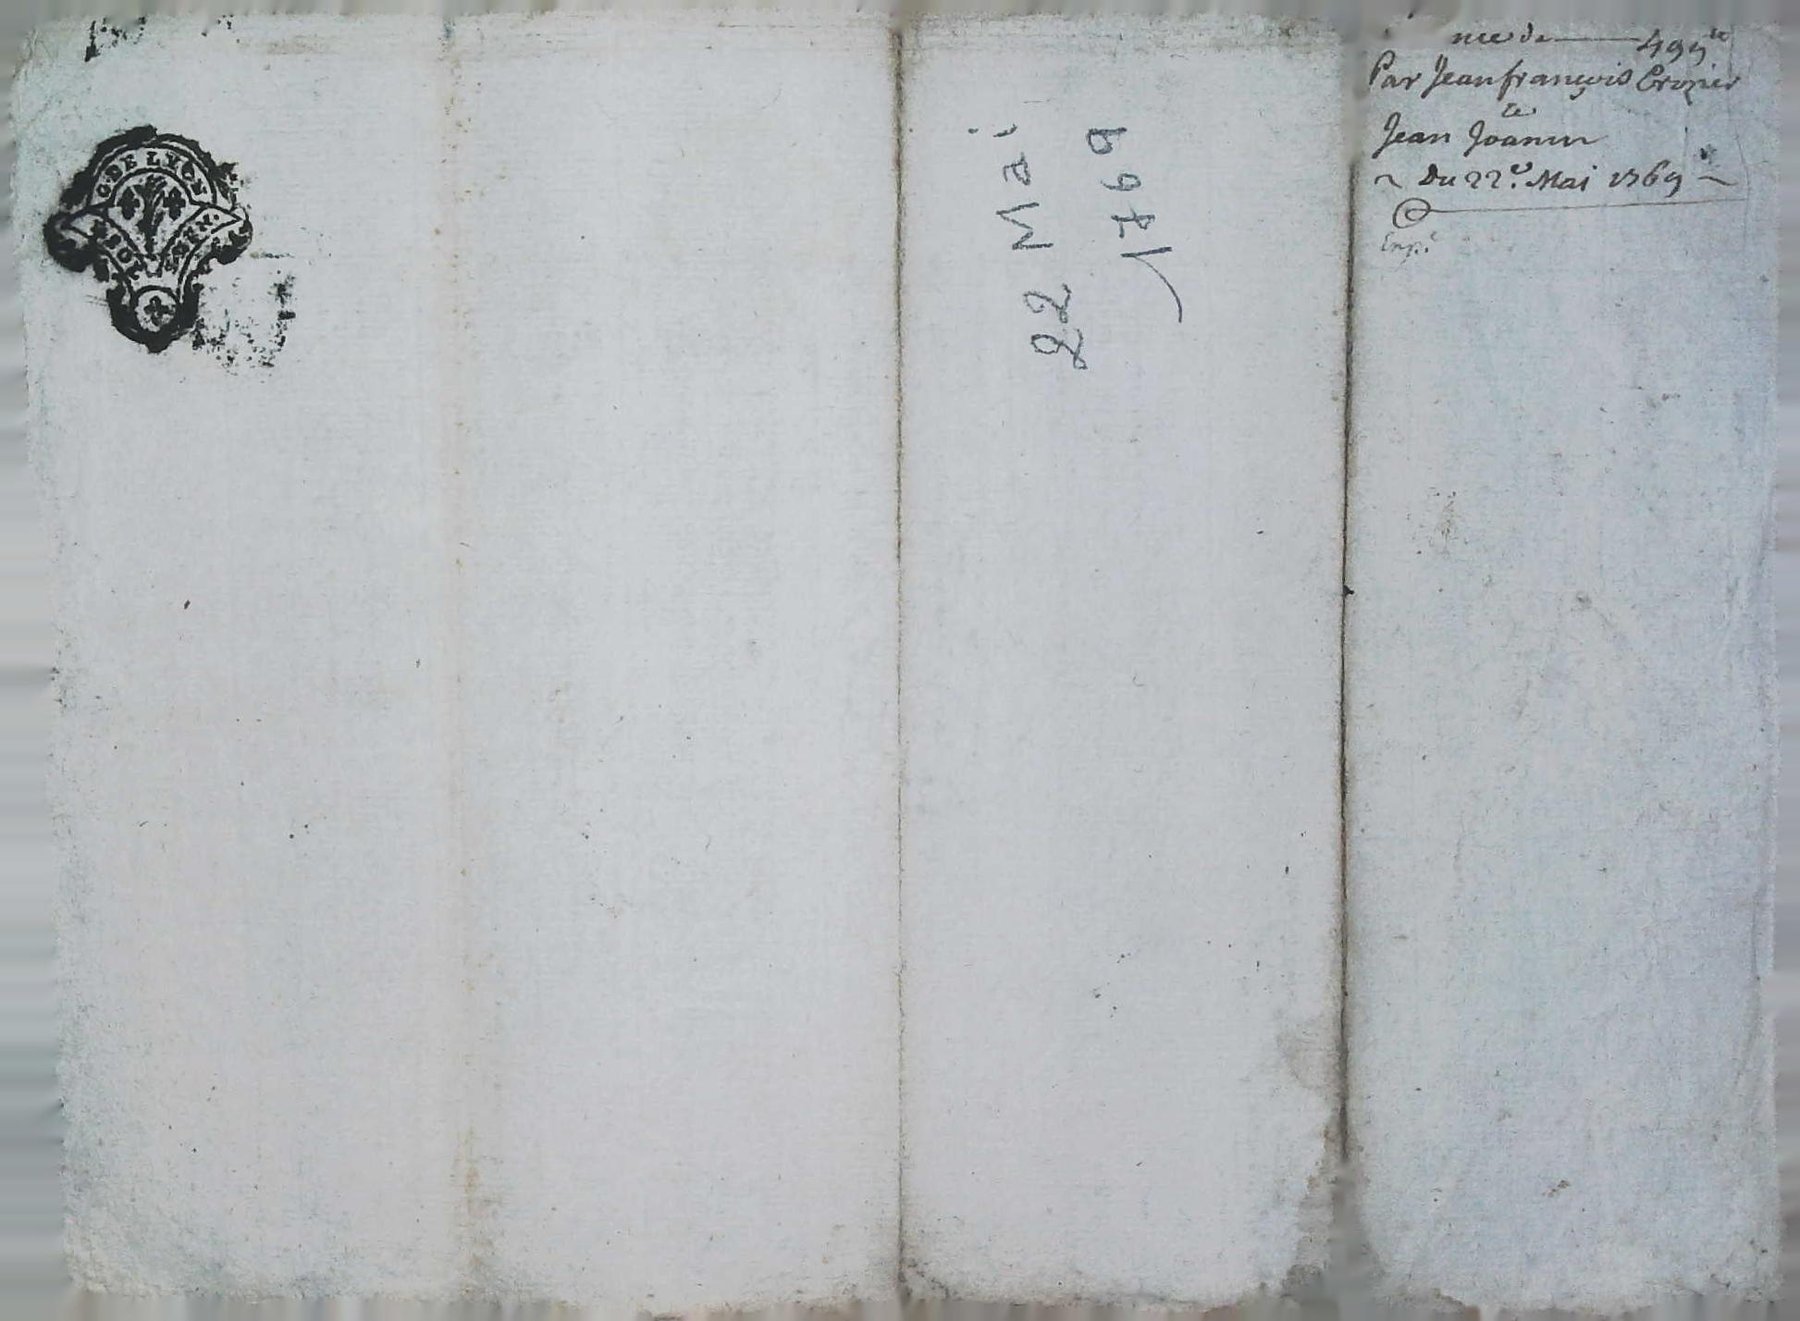 G. DE LYON
22 Mai
1769
nce de — 499 ʰᵗ
Par Jean françois Crozier
Jean Joanin
~ Du 22.e Mai 1769 ~